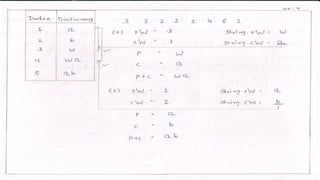 Index Dictionary
3 3 2 2 1 4 6 1
1 a
2 b
3 w
4 wa
5 ab
(2) PW = 3 String.PW = w
CW = 1 String.CW = a
P = w
C = a
P+C = wa
(3) PW = 1 String.PW = a
CW = 2 String.CW = b
P = a
C = b
P+C = ab